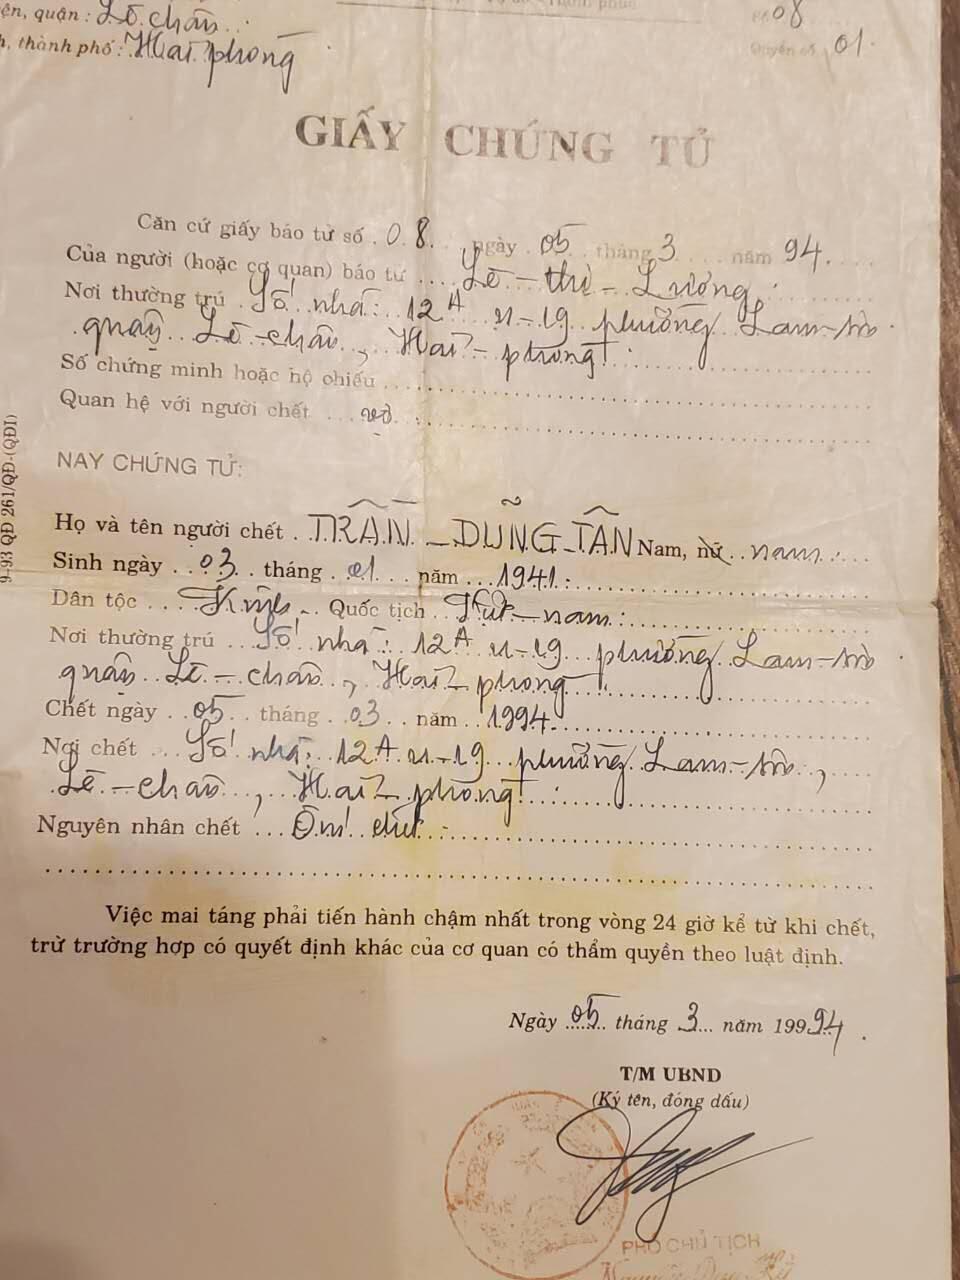 ện, quận : Lê Chân
h, thành phố : Hải phòng
Số 08
Quyển số 01
GIẤY CHỨNG TỬ
Căn cứ giấy báo tử số 08 ngày 05 tháng 3 năm 94
Của người (hoặc cơ quan) báo tử Lê - thị - Lương
Nơi thường trú Số nhà: 12A n-19 phường Lam-Sơn
quận Lê-chân, Hải-phòng
Số chứng minh hoặc hộ chiếu
Quan hệ với người chết vợ
NAY CHỨNG TỬ:
Họ và tên người chết TRẦN - DŨNG - TÂN Nam, nữ nam
Sinh ngày 03 tháng 01 năm 1941
Dân tộc Kinh Quốc tịch Việt-nam
Nơi thường trú Số nhà: 12A n-19 phường Lam-Sơn
quận Lê-chân, Hải-phòng
Chết ngày 05 tháng 03 năm 1994
Nơi chết Số nhà: 12A n-19 phường Lam-Sơn,
Lê-chân, Hải-phòng
Nguyên nhân chết Ốm chết
Việc mai táng phải tiến hành chậm nhất trong vòng 24 giờ kể từ khi chết,
trừ trường hợp có quyết định khác của cơ quan có thẩm quyền theo luật định.
Ngày 05 tháng 3 năm 19994
T/M UBND
(Ký tên, đóng dấu)
PHÓ CHỦ TỊCH
9-93 QĐ 261/QĐ-(QĐI)